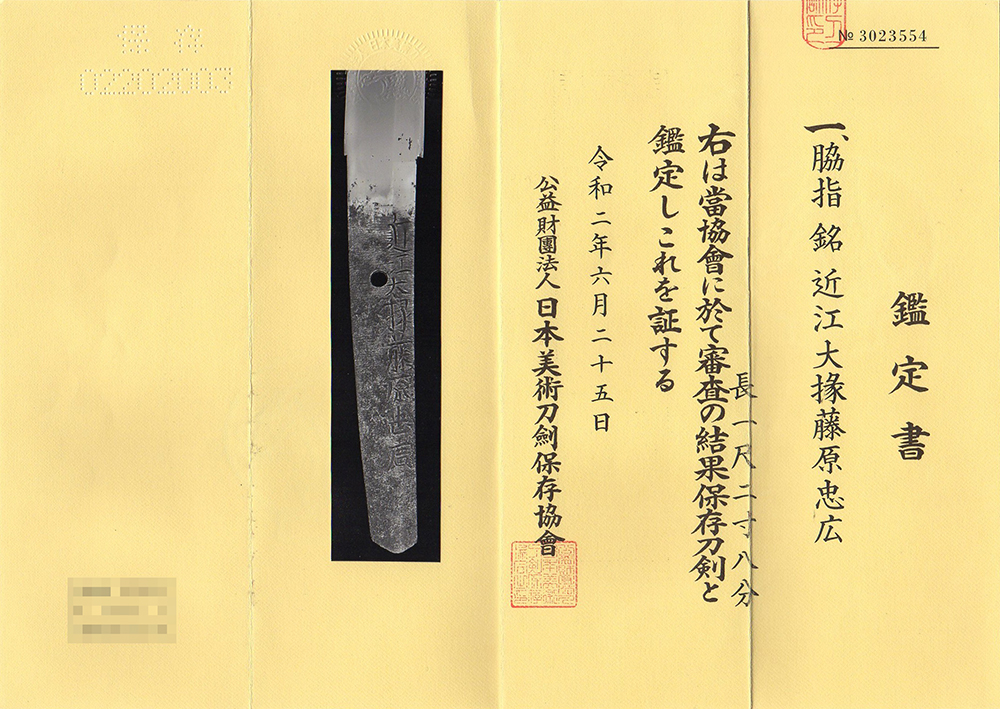 № 3023554
鑑定書
一、脇指 銘 近江大掾藤原忠広
長一尺二寸八分
右は當協會に於て審査の結果保存刀剣と
鑑定しこれを証する
令和二年六月二十五日
公益財團法人日本美術刀劍保存協會
近江大掾藤原忠広
保存
02202003